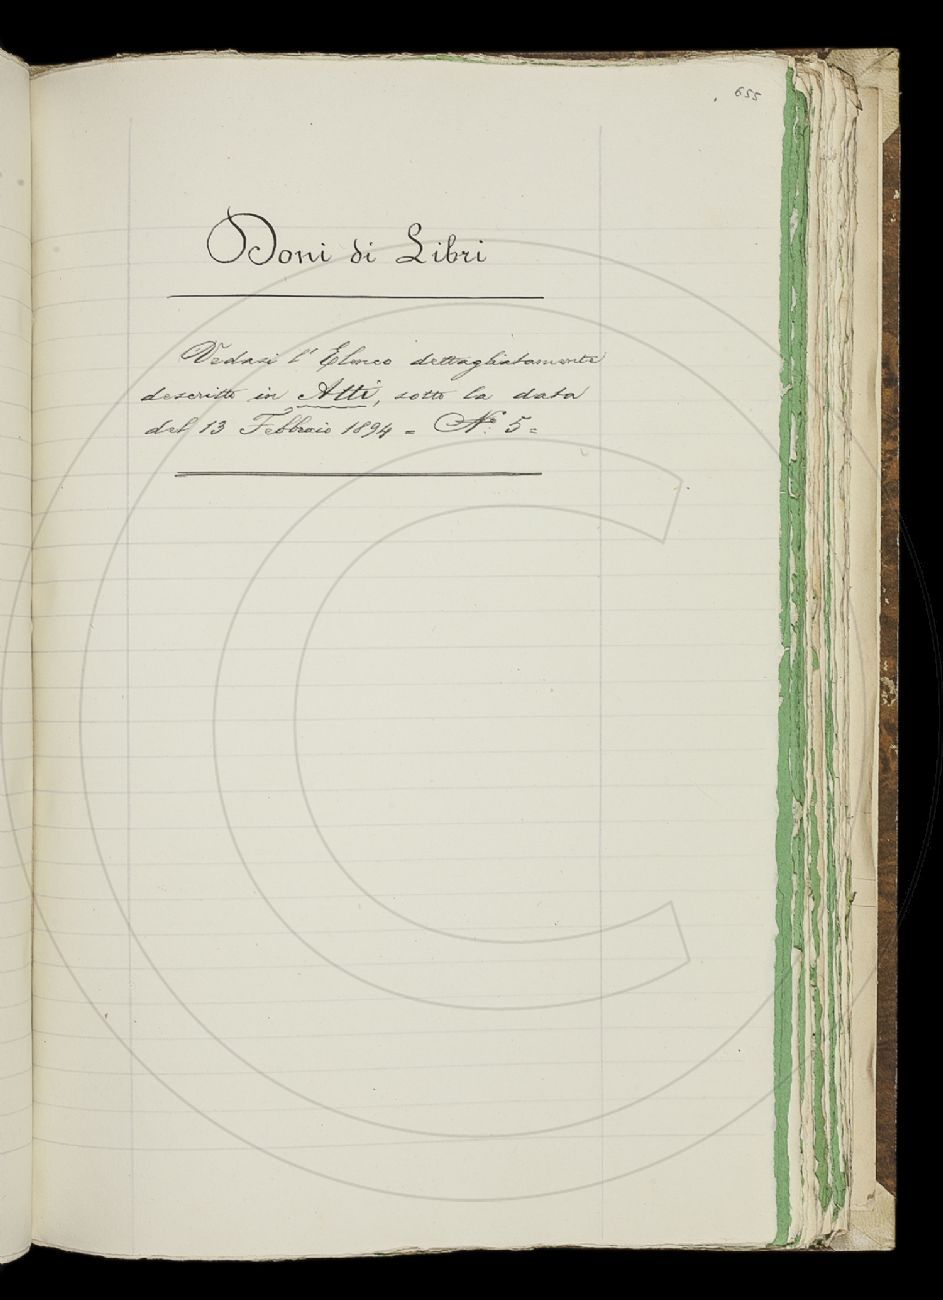 655
Doni di Libri
Vedasi l' Elenco dettagliatamente
descritto in Atti, sotto la data
del 13 Febbraio 1894 = N.° 5 =